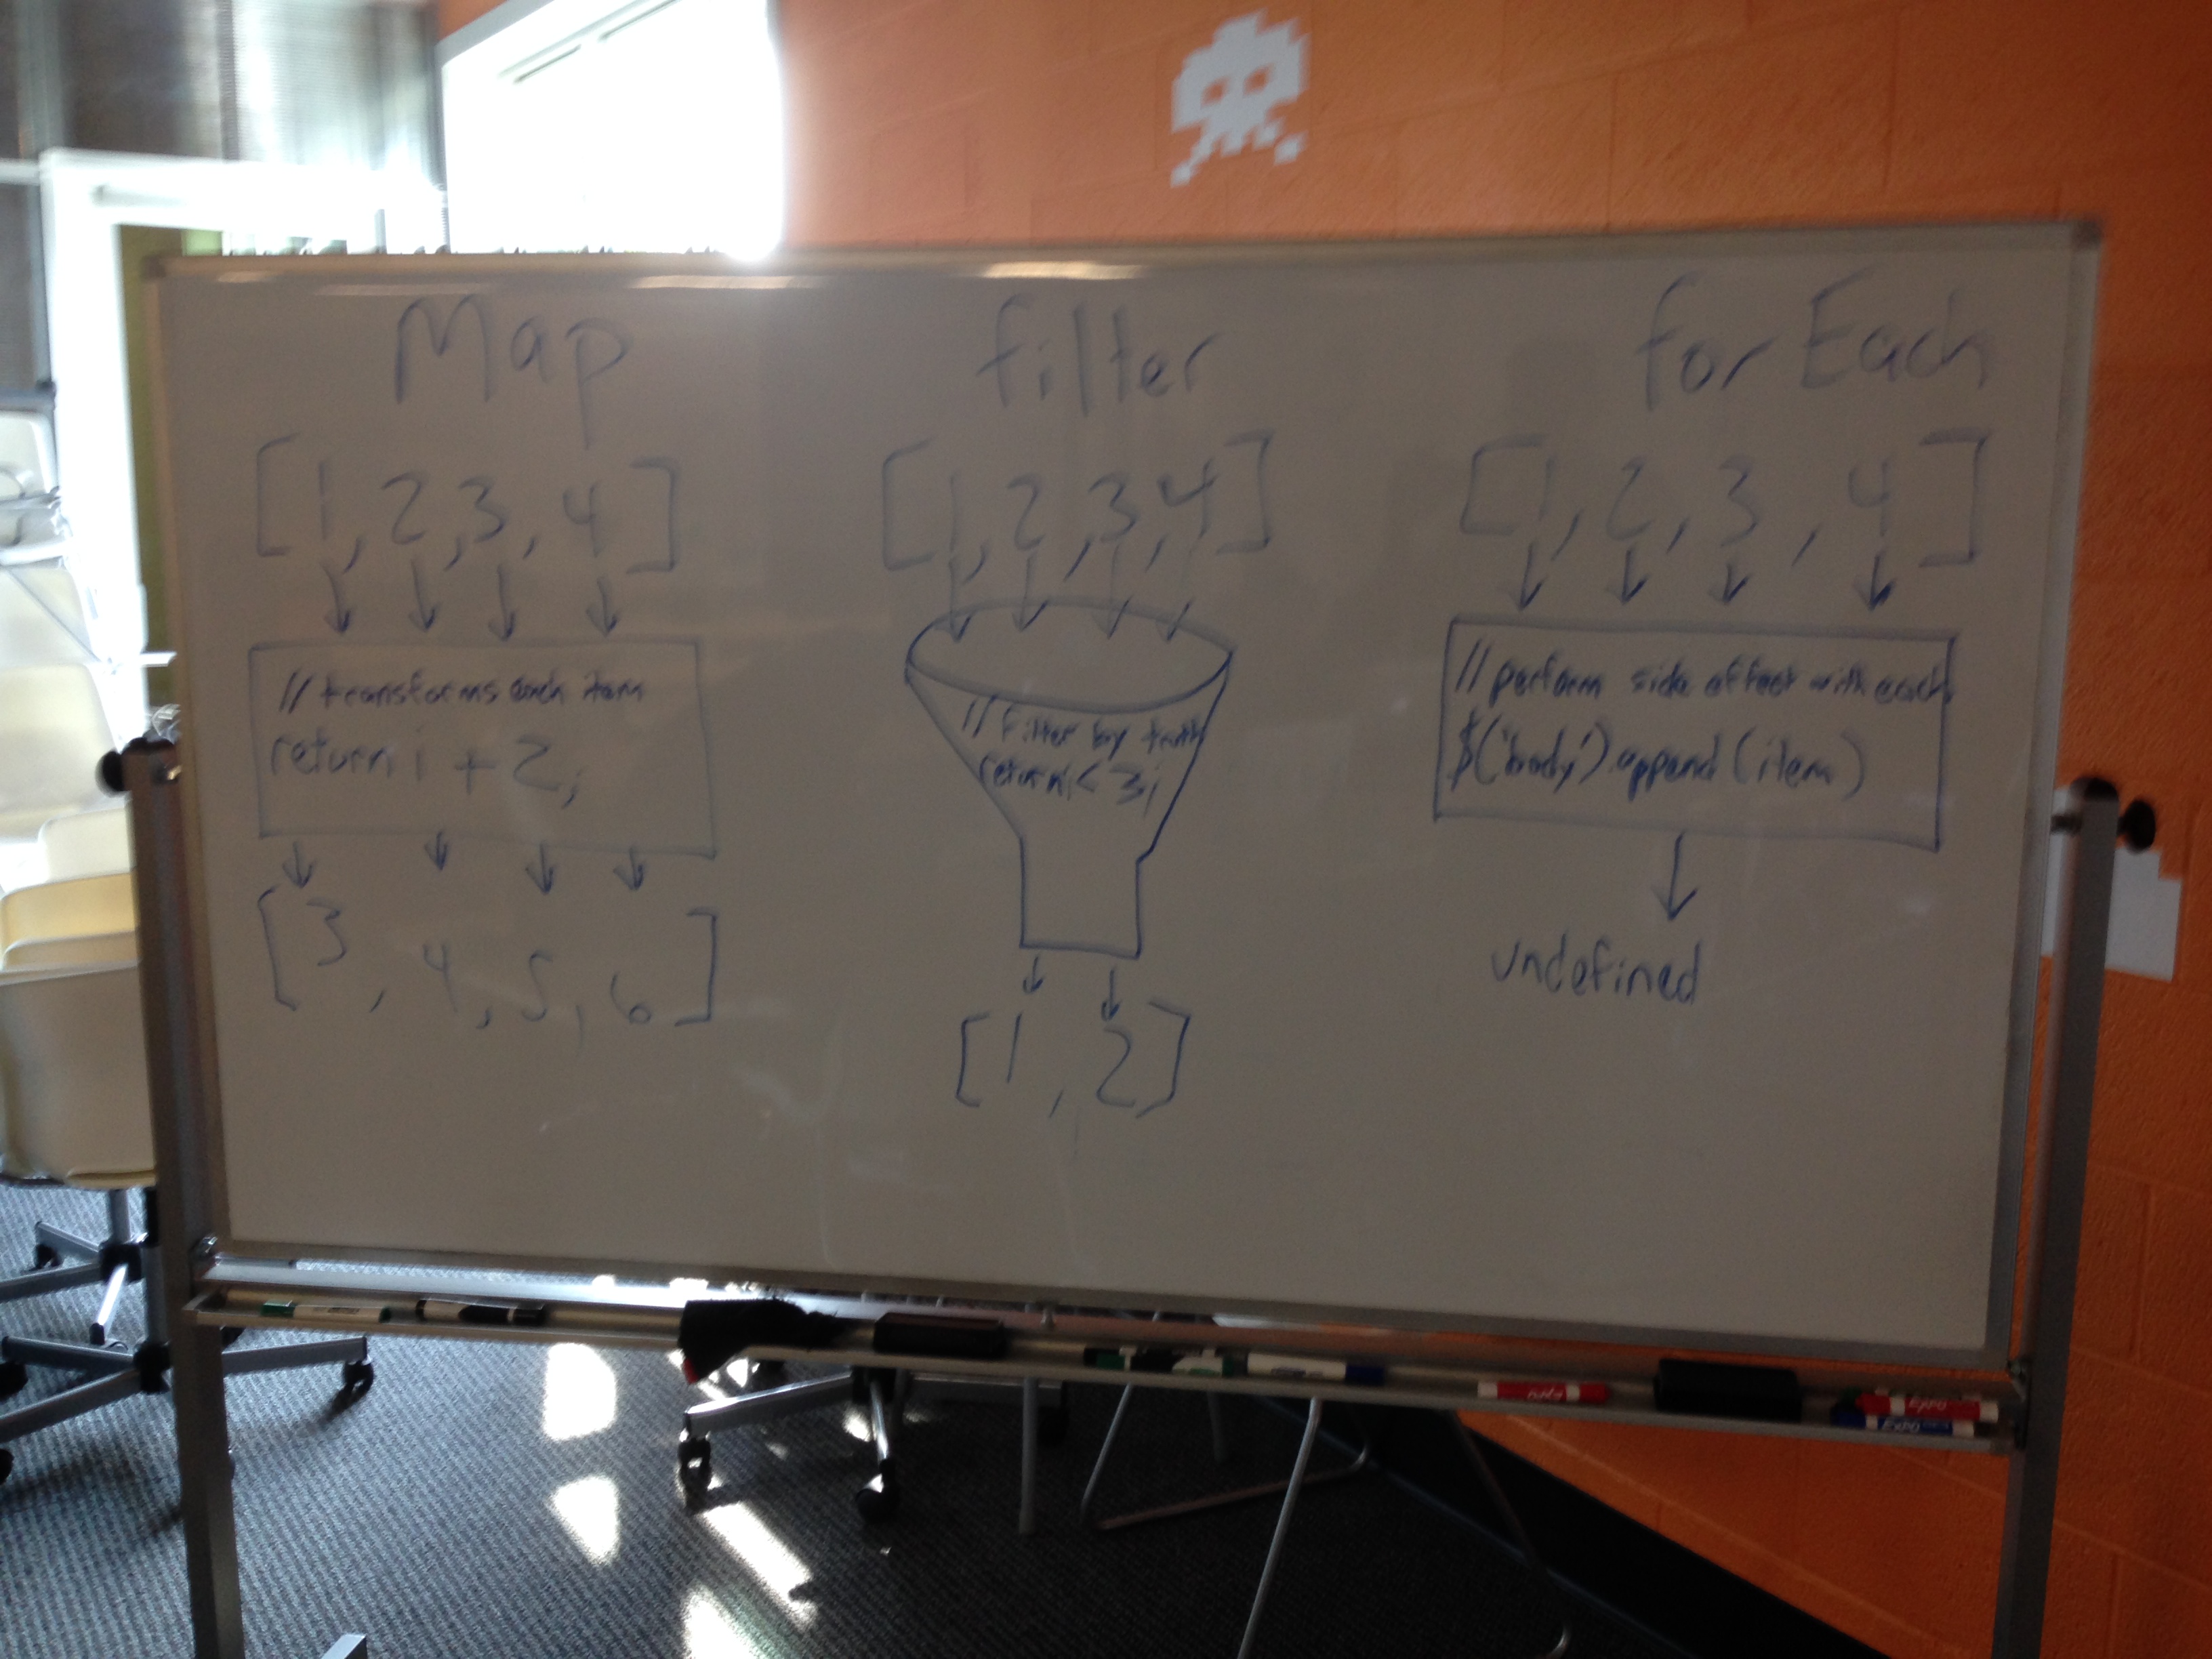 Map
[1, 2, 3, 4]
// transforms each item
return i + 2;
[3, 4, 5, 6]
filter
[1, 2, 3, 4]
// filter by truth
return i < 3;
[1, 2]
forEach
[1, 2, 3, 4]
// perform side effect with each
$('body').append(item)
undefined
expo
expo
expo